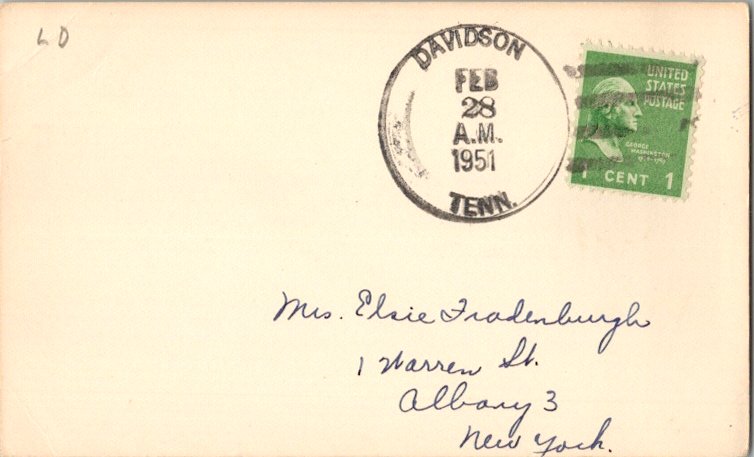 LD
DAVIDSON
FEB
28
A.M.
1951
TENN.
UNITED
STATES
POSTAGE
GEORGE
WASHINGTON
1 CENT 1
Mrs. Elsie Fradenburgh
1 Warren St.
Albany 3
New York.